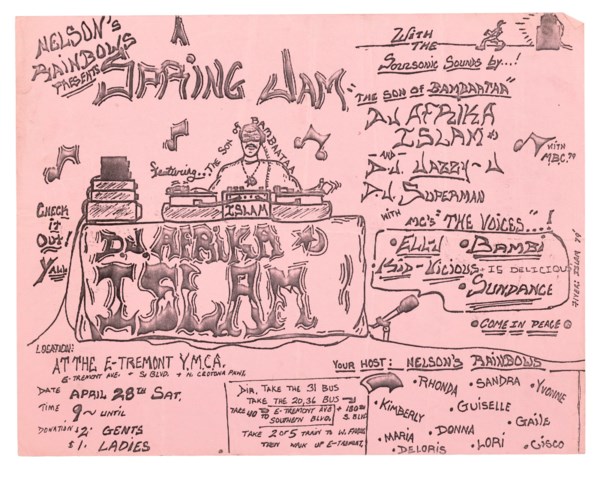 NELSON'S
RAINBOWS
PRESENTS
A
SPRING JAM
WITH
THE
SOULSONIC SOUNDS BY...!
"THE SON OF BAMBAATAA"
DJ AFRIKA
ISLAM
AND
D.J. JAZZY-J
D.J. SUPERMAN
WITH
M.B.C.
WITH MC'S "THE VOICES"...!
ELLIV • BAMBI
KID-VICIOUS IS DELICIOUS
• SUNDANCE
• COME IN PEACE
Featuring...THE SON OF BAMBAATAA
ISLAM
D.J. AFRIKA
ISLAM
CHECK
iT
OUT!
YALL
LOCATION:
AT THE E-TREMONT Y.M.C.A.
E-TREMONT AVE. + S. BLVD. + N. CROTONA PARK.
DATE APRIL 28TH SAT.
TIME 9~ UNTIL
DONATION $2. GENTS
$1. LADIES
DIR, TAKE THE 31 BUS
TAKE THE 20, 36 BUS
TAKE 40 TO E-TREMONT AVE
SOUTHERN BLVD.
180TH
S. BLVD.
TAKE 2 OR 5 TRAIN TO W. FARMS
THEN WALK UP E-TREMONT.
YOUR HOST: NELSON'S RAINBOWS
• RHONDA • SANDRA • YVONNE
• KIMBERLY • GUISELLE
• DONNA • GAILE
• MARIA
• DELORIS • LORI • CISCO